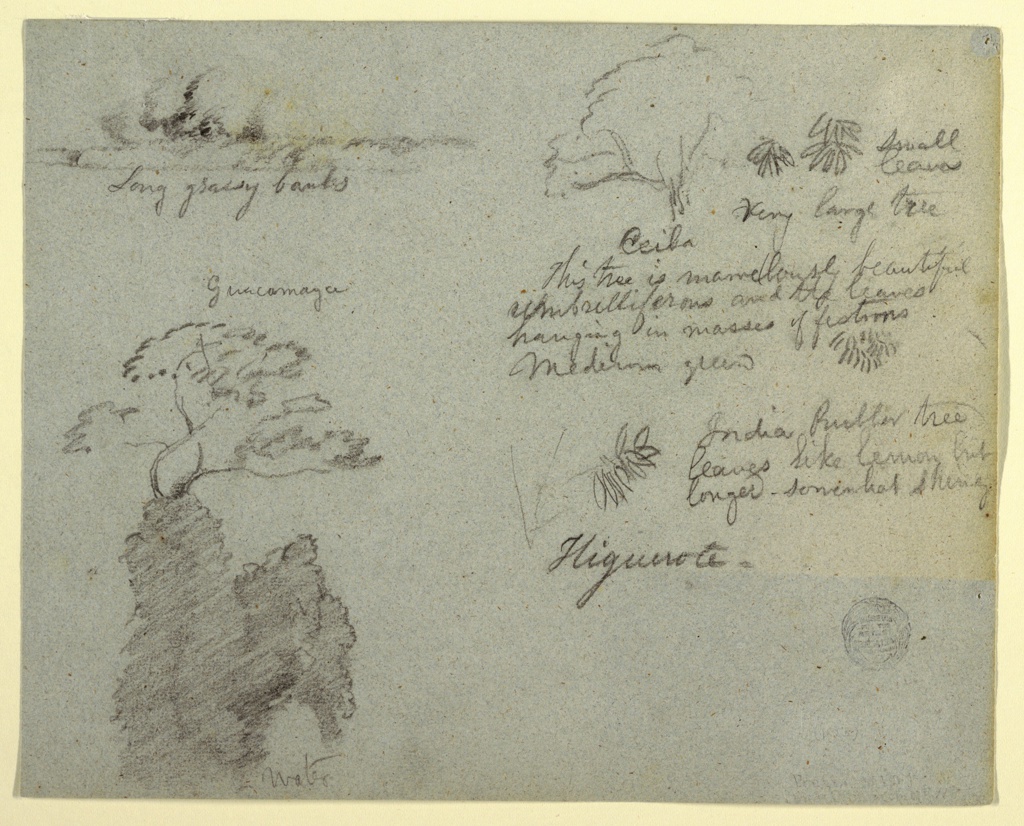 Long grassy banks
Guacamaya
Water
small
leaves
Very large tree
Ceiba
This tree is marvelously beautiful
umbrelliferous and the leaves
hanging in masses of festoons
Medium green
India Rubber tree
leaves like lemon but
longer - somewhat shiny
Higuerote -